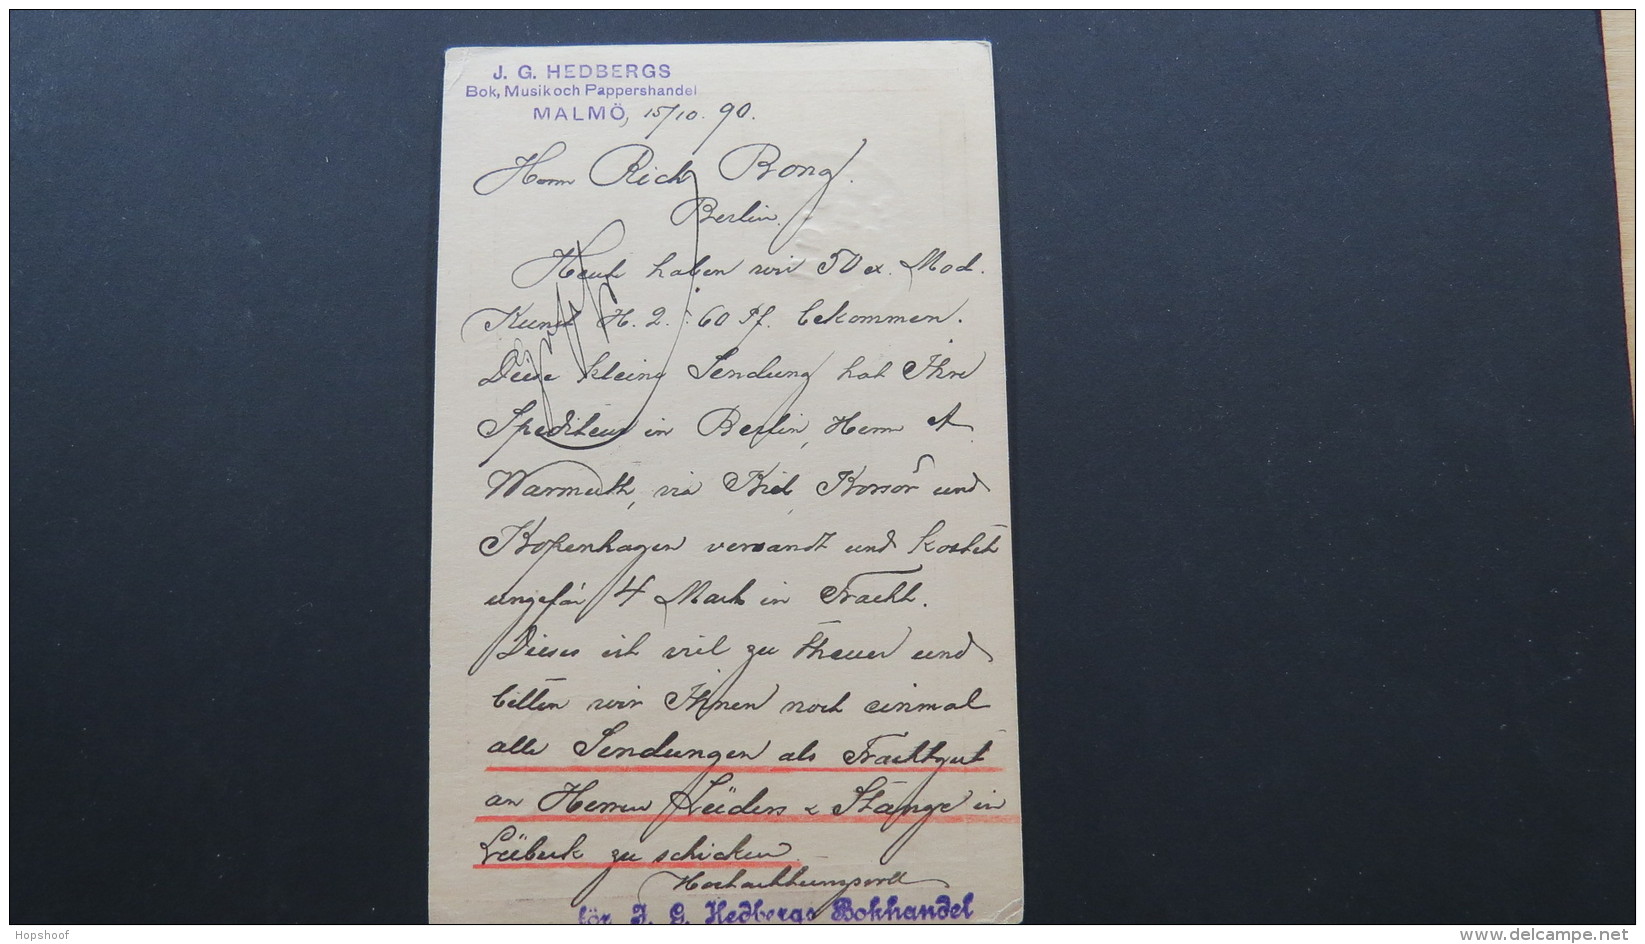 J. G. HEDBERGS
Bok, Musik och Pappershandel
MALMÖ, 15/10. 90.
Herrn Rich Bong.
Berlin.
Heute haben wir 50 ex. Mod.
Kunst H. 2. : 60 Pf. bekommen.
Diese kleine Sendung hat Ihre
Spediteur in Berlin, Herrn A.
Warmuth, via Kiel, Korsör und
Kopenhagen versandt und kostet
ungefär 4 Mark in Fracht.
Dieses ist viel zu theuer und
bitten wir Ihnen noch einmal
alle Sendungen als Frachtgut
an Herren Lüders & Stange in
Lübeck zu schicken.
Hochachtungsvoll
för J. G. Hedbergs Bokhandel
Hopshoof
delcampe.net